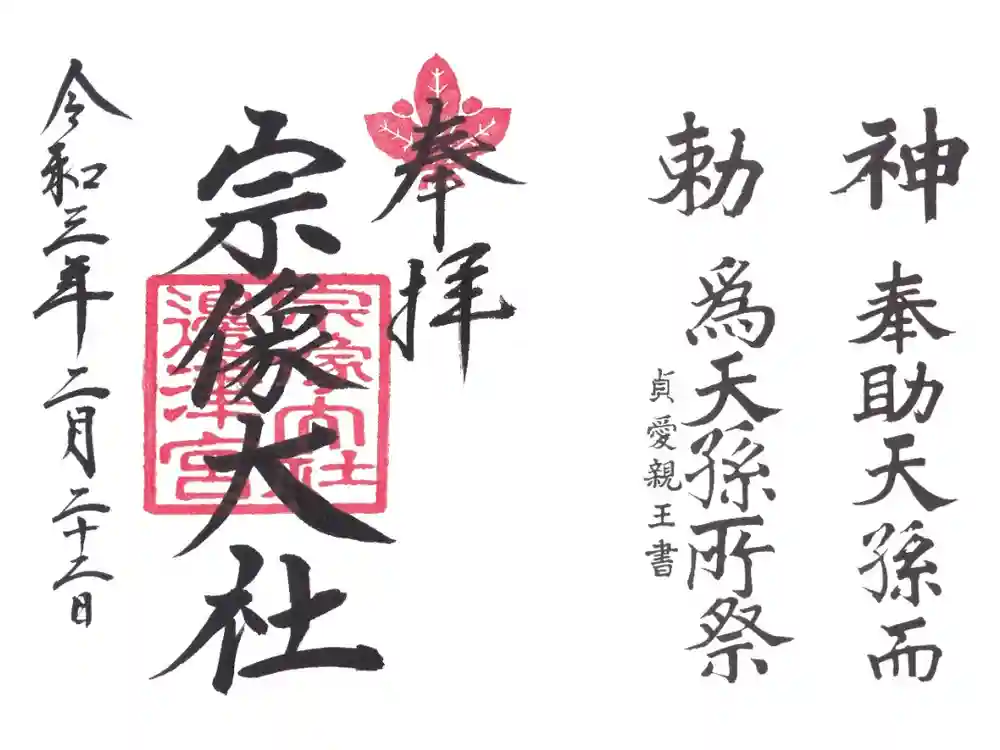 神 奉助天孫而
勅 爲天孫所祭
貞愛親王書
奉拝
宗像大社
宗像大社
邊津宮
令和三年二月二十三日